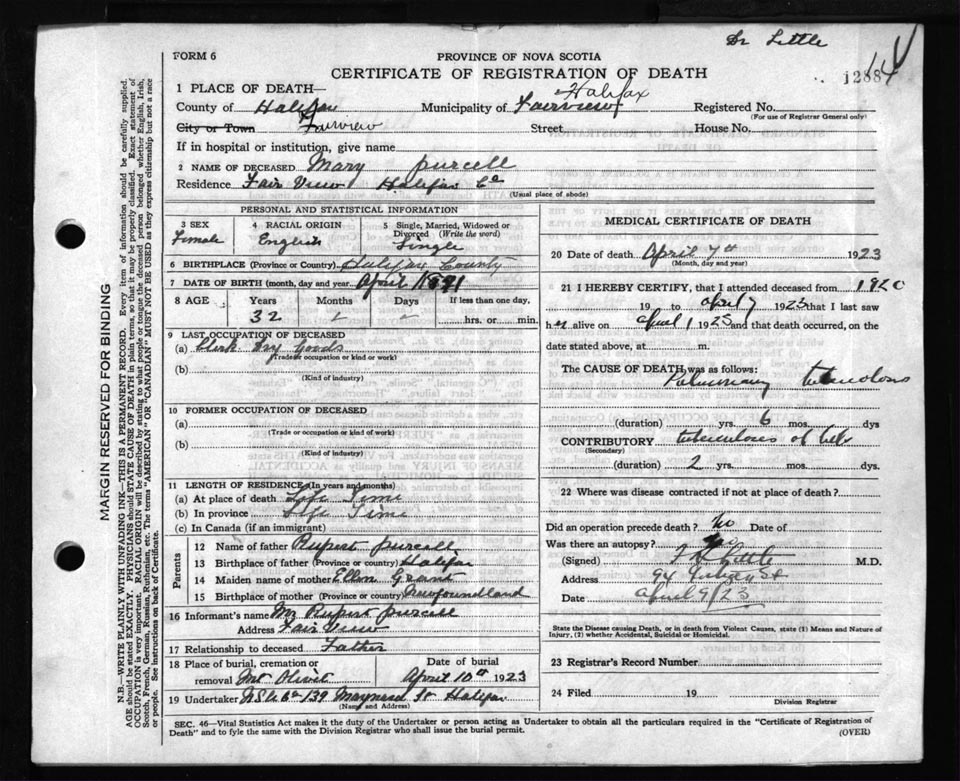 Dr Little
FORM 6
PROVINCE OF NOVA SCOTIA
CERTIFICATE OF REGISTRATION OF DEATH
1288
1 PLACE OF DEATH—
Halifax
County of Halifax Municipality of Fairview Registered No.
(For use of Registrar General only)
City or Town Fairview Street House No.
If in hospital or institution, give name
2 NAME OF DECEASED Mary purcell
Residence Fair View Halifax Co
(Usual place of abode)
PERSONAL AND STATISTICAL INFORMATION
3 SEX 4 RACIAL ORIGIN 5 Single, Married, Widowed or Divorced (Write the word)
Female English Single
6 BIRTHPLACE (Province or Country) Halifax County
7 DATE OF BIRTH (month, day and year) April 1891
8 AGE Years Months Days If less than one day,
32 hrs. or min.
9 LAST OCCUPATION OF DECEASED
(a) Clerk Dry Goods
(Trade or occupation or kind or work)
(b)
(Kind of industry)
10 FORMER OCCUPATION OF DECEASED
(a)
(Trade or occupation or kind of work)
(b)
(Kind of industry)
11 LENGTH OF RESIDENCE (In years and months)
(a) At place of death Life Time
(b) In province Life Time
(c) In Canada (if an immigrant)
Parents
12 Name of father Rupert purcell
13 Birthplace of father (Province or country) Halifax
14 Maiden name of mother Ellen Grant
15 Birthplace of mother (Province or country) Newfoundland
16 Informant's name Mr Rupert purcell
Address Fair View
17 Relationship to deceased Father
18 Place of burial, cremation or removal Mt Olivet Date of burial April 10th 1923
19 Undertaker 139 Maynard St Halifax
(Name and Address)
MEDICAL CERTIFICATE OF DEATH
20 Date of death April 7th 1923
(Month, day and year)
21 I HEREBY CERTIFY, that I attended deceased from 1920
19 to april 7 1923 that I last saw
her alive on april 1 1923 and that death occurred, on the
date stated above, at m.
The CAUSE OF DEATH was as follows:
Pulmonary tuberculosis
(duration) yrs. 6 mos. dys
CONTRIBUTORY tuberculosis of
(Secondary)
(duration) 2 yrs. mos. dys.
22 Where was disease contracted if not at place of death?
Did an operation precede death? no Date of
Was there an autopsy? no
(Signed) Little M.D.
Address 94 St
Date april 9/23
State the Disease causing Death, or in death from Violent Causes, state (1) Means and Nature of Injury, (2) whether Accidental, Suicidal or Homicidal.
23 Registrar's Record Number
24 Filed 19
Division Registrar
SEC. 46—Vital Statistics Act makes it the duty of the Undertaker or person acting as Undertaker to obtain all the particulars required in the "Certificate of Registration of
Death" and to fyle the same with the Division Registrar who shall issue the burial permit. (OVER)
MARGIN RESERVED FOR BINDING
N.B.—WRITE PLAINLY WITH UNFADING INK—THIS IS A PERMANENT RECORD. Every item of information should be carefully supplied.
AGE should be stated EXACTLY. PHYSICIANS should STATE CAUSE OF DEATH in plain terms, so that it may be properly classified. Exact statement of
OCCUPATION is very important. RACIAL ORIGIN will be described by stating to what people or tongue the deceased person belonged whether English, Irish,
Scotch, French, German, Russian, Ruthenian, etc. The terms "AMERICAN" OR "CANADIAN" MUST NOT BE USED as they express citizenship but not a race
or people. See instructions on back of Certificate.